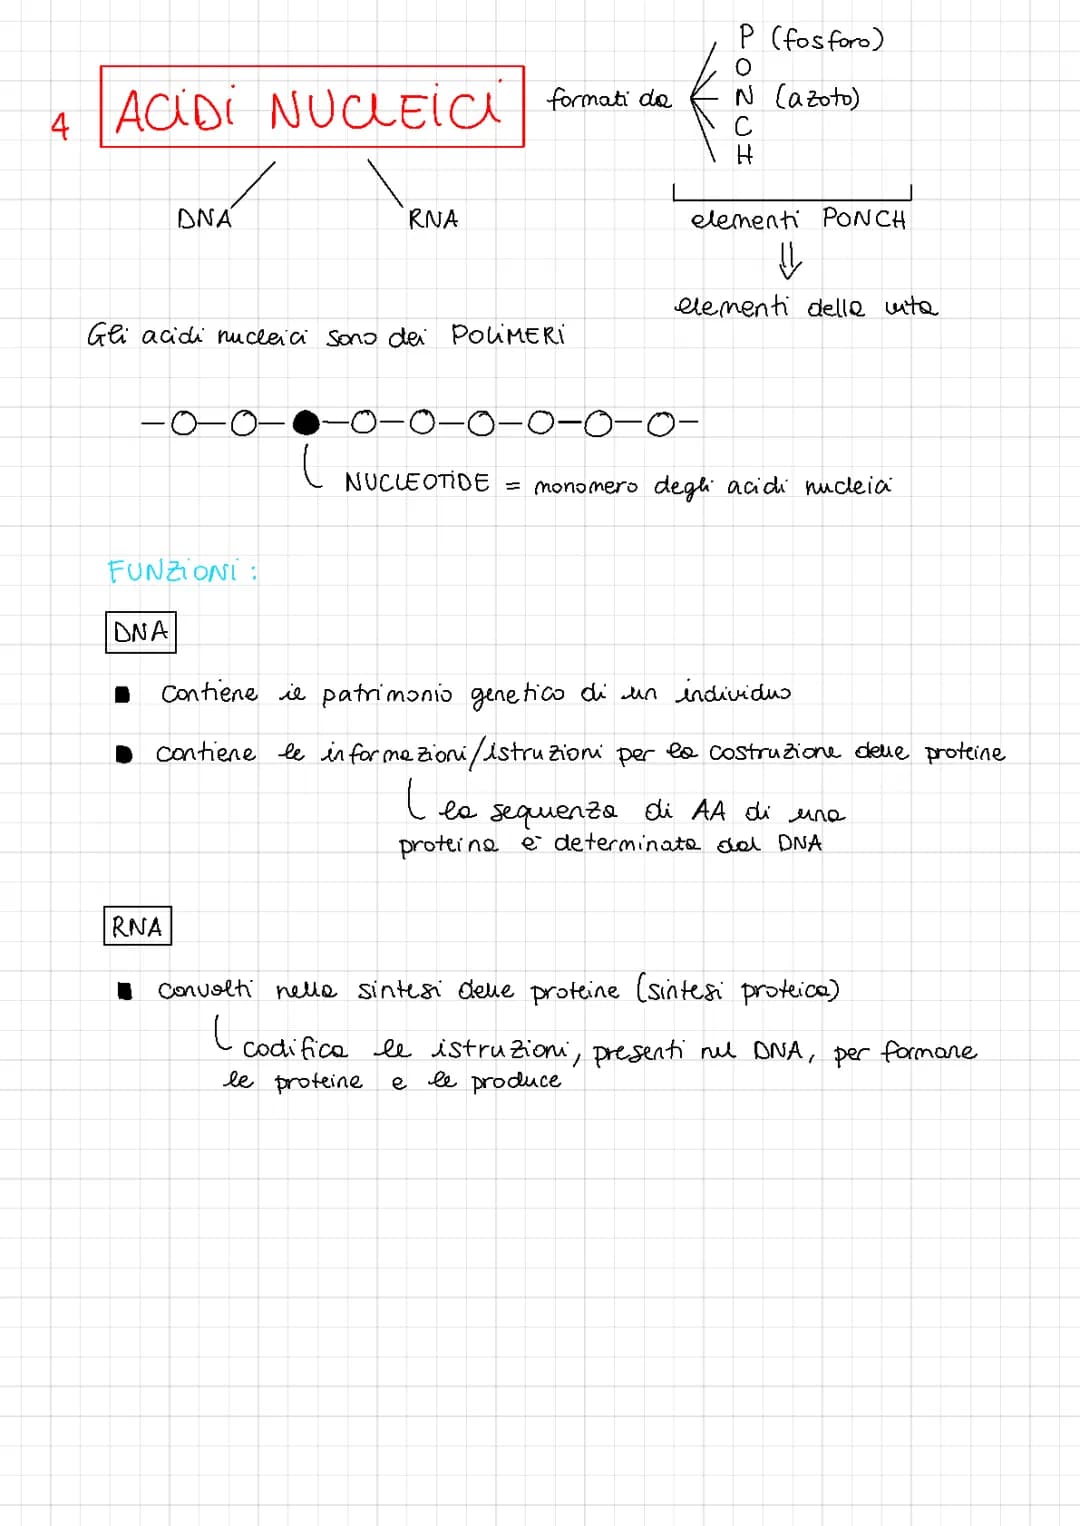 4 ACIDI NUCLEICI formati da
P (fosforo)
O
N (azoto)
C
H
DNA RNA
elementi PONCH
elementi della vita
Gli acidi nucleici sono dei POLIMERI
NUCLEOTIDE = monomero degli acidi nucleici
FUNZIONI:
DNA
Contiene il patrimonio genetico di un individuo
contiene le informazioni/istruzioni per la costruzione delle proteine
la sequenza di AA di una
proteina è determinata dal DNA
RNA
convolti nella sintesi delle proteine (sintesi proteica)
codifica le istruzioni, presenti nel DNA, per formare
le proteine e le produce